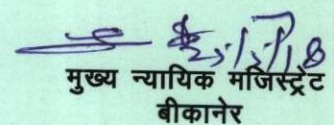 मुख्य न्यायिक मजिस्ट्रेट
बीकानेर